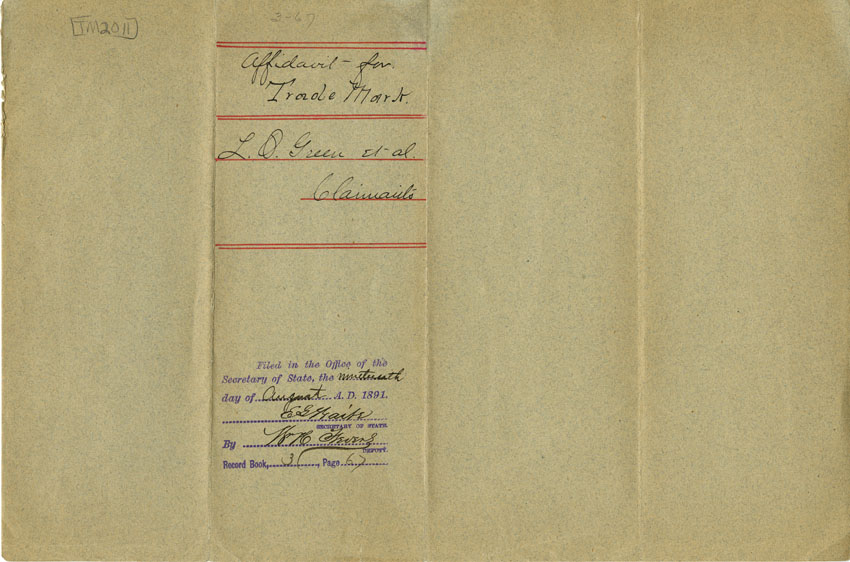 TM2011
3-67
Affidavit - for
Trade Mark.
L. O. Green et al.
Claimants
Filed in the Office of the
Secretary of State, the nineteenth
day of August A. D. 1891.
E G Waite
SECRETARY OF STATE.
By
DEPUTY.
Record Book, 3, Page 67